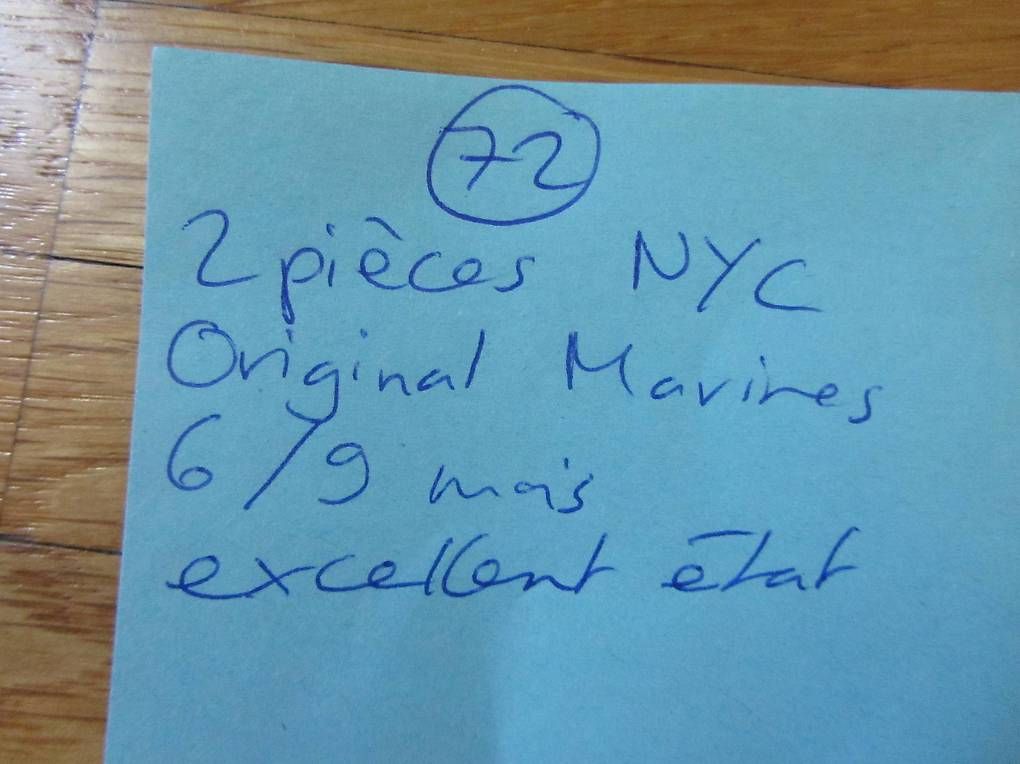 72
2 pièces NYC
Original Marines
6/9 mois
excellent état